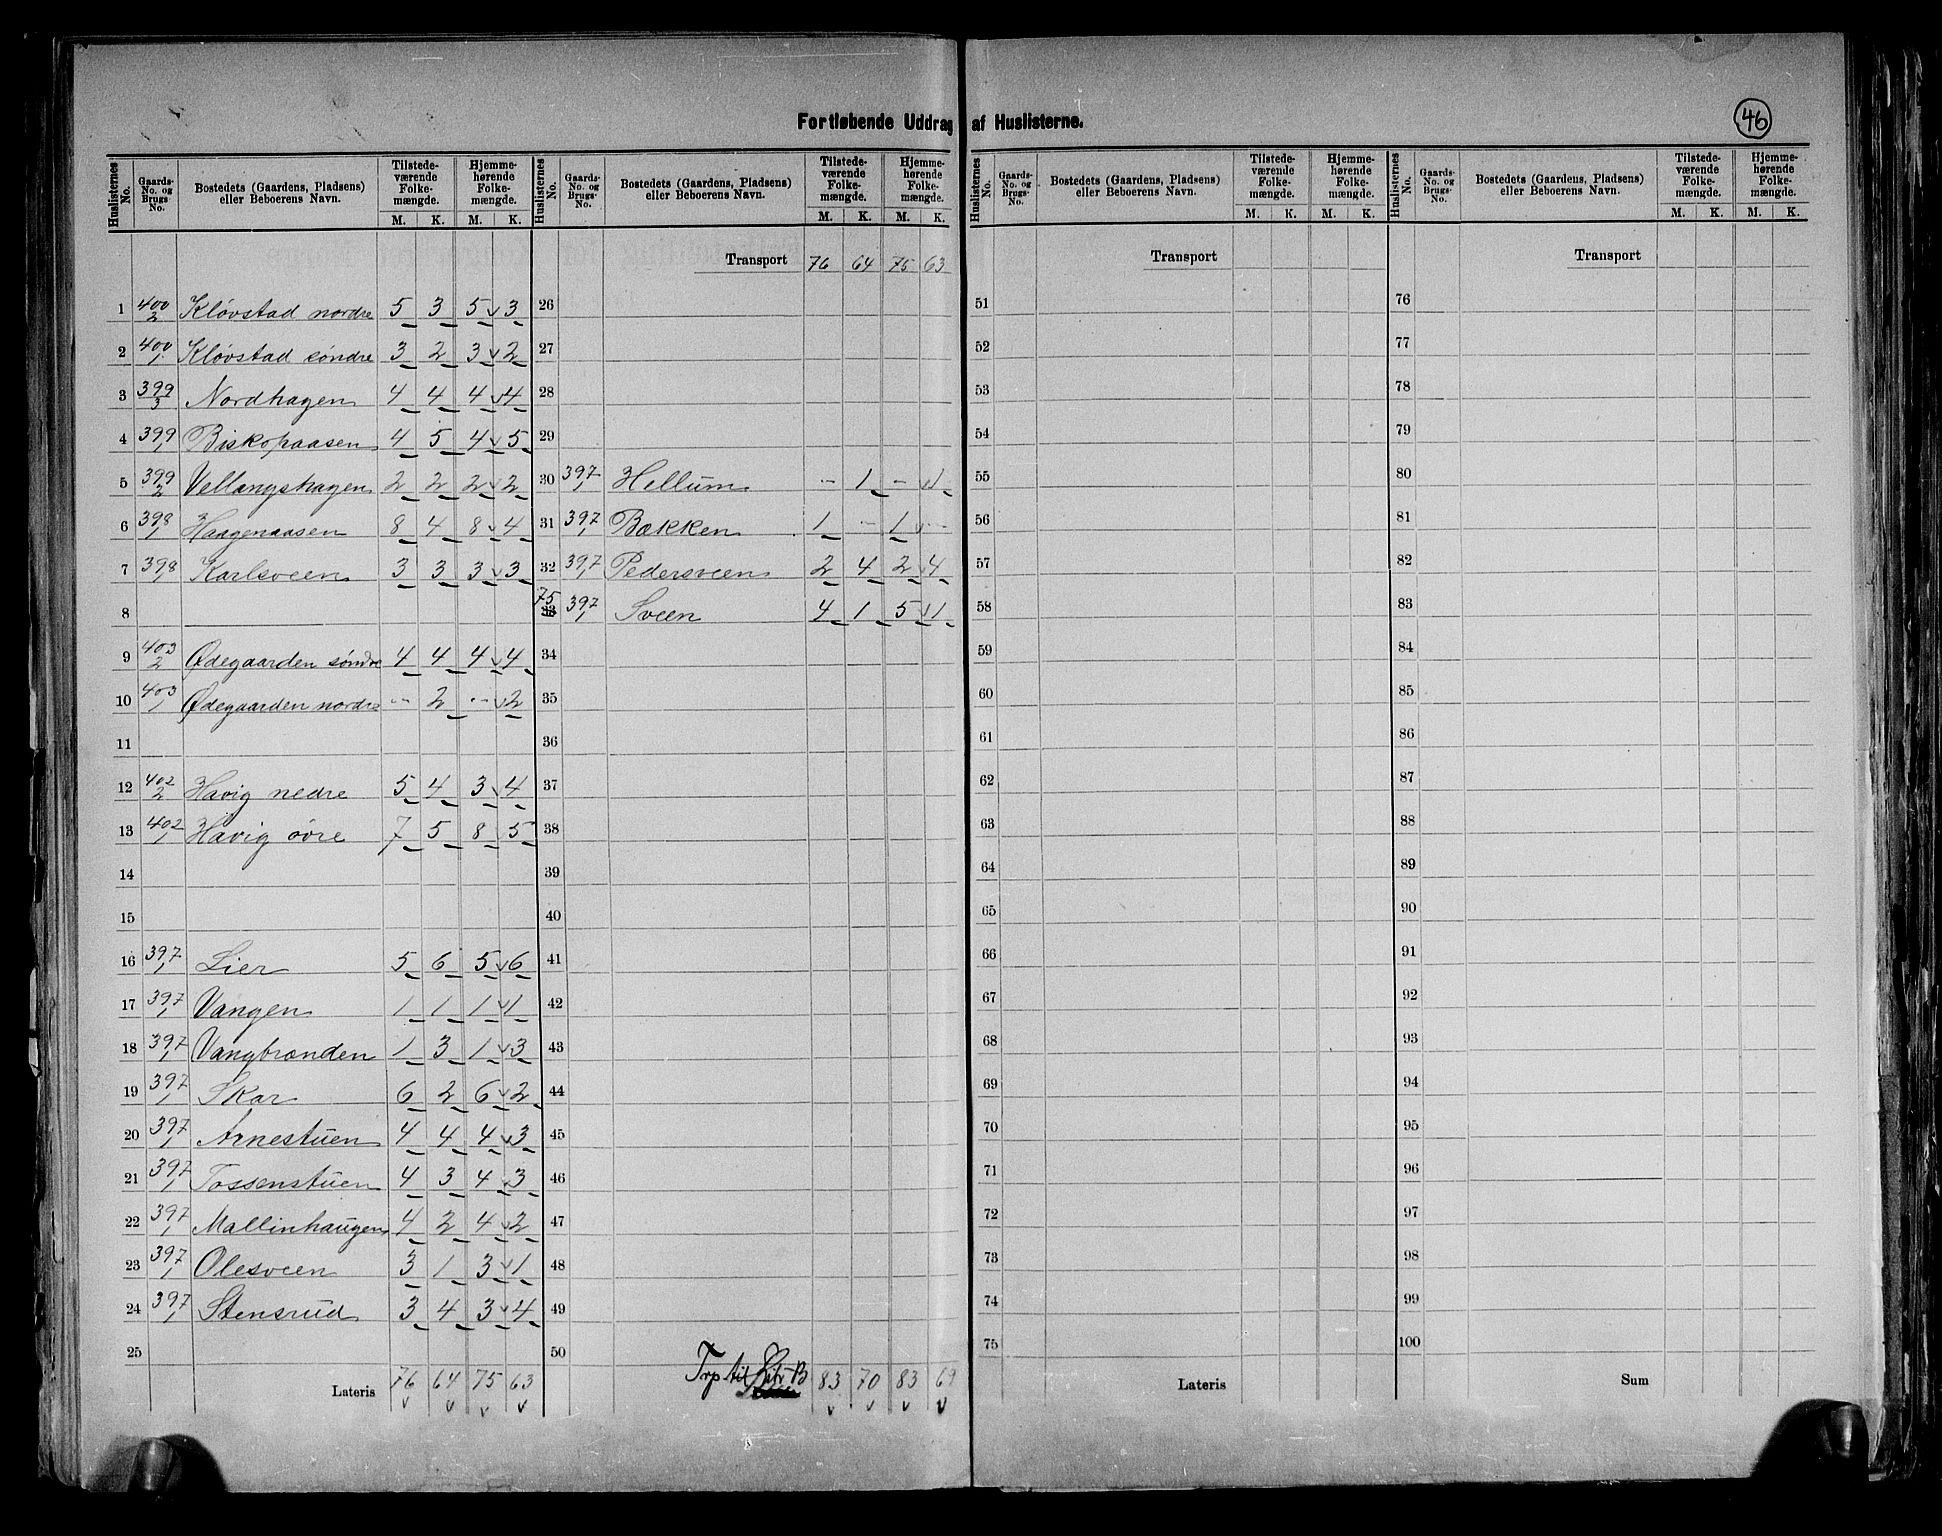 Fortløbende Uddrag af Huslisterne.
46
Huslisternes No. Gaards-No. og Brugs-No. Bostedets (Gaardens, Pladsens) eller Beboerens Navn. Tilstede-værende Folke-mængde. M. K. Hjemme-hørende Folke-mængde. M. K.
Huslisternes No. Gaards-No. og Brugs-No. Bostedets (Gaardens, Pladsens) eller Beboerens Navn. Tilstede-værende Folke-mængde. M. K. Hjemme-hørende Folke-mængde. M. K.
Huslisternes No. Gaards-No. og Brugs-No. Bostedets (Gaardens, Pladsens) eller Beboerens Navn. Tilstede-værende Folke-mængde. M. K. Hjemme-hørende Folke-mængde. M. K.
Huslisternes No. Gaards-No. og Brugs-No. Bostedets (Gaardens, Pladsens) eller Beboerens Navn. Tilstede-værende Folke-mængde. M. K. Hjemme-hørende Folke-mængde. M. K.
1 400/2 Kløvstad nordre 5 3 5 3
2 400/1 Kløvstad søndre 3 2 3 2
3 399/3 Nordhagen 4 4 4 4
4 399/1 Biskopaasen 4 5 4 5
5 399/2 Vellangshagen 2 2 2 2
6 398/1 Haagenaasen 8 4 8 4
7 398/1 Karlsveen 3 3 3 3
8
9 403/2 Ødegaarden søndre 4 4 4 4
10 403/1 Ødegaarden nordre -- 2 -- 2
11
12 402/2 Havig nedre 5 4 3 4
13 402/1 Havig øvre 7 5 8 5
14
15
16 397/1 Lier 5 6 5 6
17 397/1 Vangen 1 1 1 1
18 397/1 Vangbrænden 1 3 1 3
19 397/1 Skar 6 2 6 2
20 397/1 Arnestuen 4 4 4 3
21 397/1 Tossenstuen 4 3 4 3
22 397/1 Mallinhaugen 4 2 4 2
23 397/1 Olesveen 3 1 3 1
24 397/1 Stensrud 3 4 3 4
25
Lateris 76 64 75 63
Transport 76 64 75 63
26
27
28
29
30 397/1 Hellum -- 1 -- 1
31 397/1 Bækken 1 -- 1 --
32 397/1 Pedersveen 2 4 2 4
75 33 397/1 Sveen 4 1 5 1
34
35
36
37
38
39
40
41
42
43
44
45
46
47
48
49
50
Trp til Litr B 83 70 83 69
Transport
51
52
53
54
55
56
57
58
59
60
61
62
63
64
65
66
67
68
69
70
71
72
73
74
75
Lateris
Transport
76
77
78
79
80
81
82
83
84
85
86
87
88
89
90
91
92
93
94
95
96
97
98
99
100
Sum